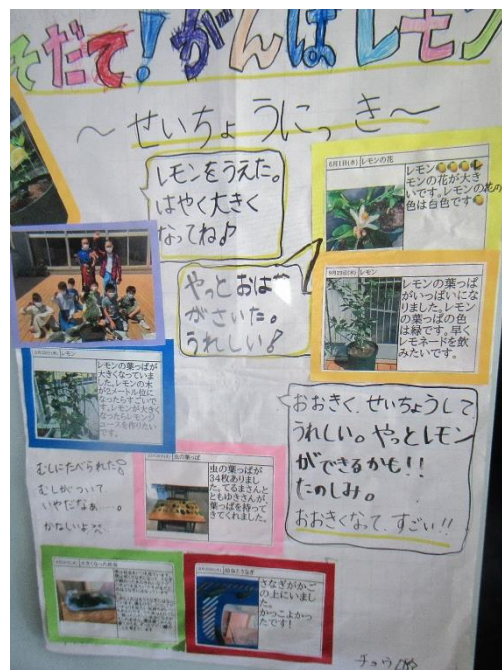 そだて!がんばレモン
～せいちょうにっき～
レモンをうえた。
はやく大きく
なってね♪
レモンの花
レモン
モンの花が大き
いです。レモンの花の
色は白色です
やっとおはな
がさいた。
うれしい!
レモン
レモンの葉っぱ
がいっぱいにな
りました。レモン
の葉っぱの色
は緑です。早く
レモネードを飲
みたいです。
レモン
レモンの葉っぱが
大きくなっていま
した。レモンの木
が2メートル位に
なったらすごいで
す。レモンが大きく
なったらレモンジ
ュースを作りたい
です。
おおきく、せいちょうして、
うれしい。やっとレモン
ができるかも!!
たのしみ。
おおきくなって、すごい!!
むしにたべられた
むしがついて
いやだなぁ…。
かなしいよ
虫の葉っぱ
虫の葉っぱが
34枚ありまし
た。てるまさんと
ともゆきさんが
葉っぱを持って
きてくれました。
さなぎがかご
の上にいまし
た。
かっこよかっ
たです!
チョウ